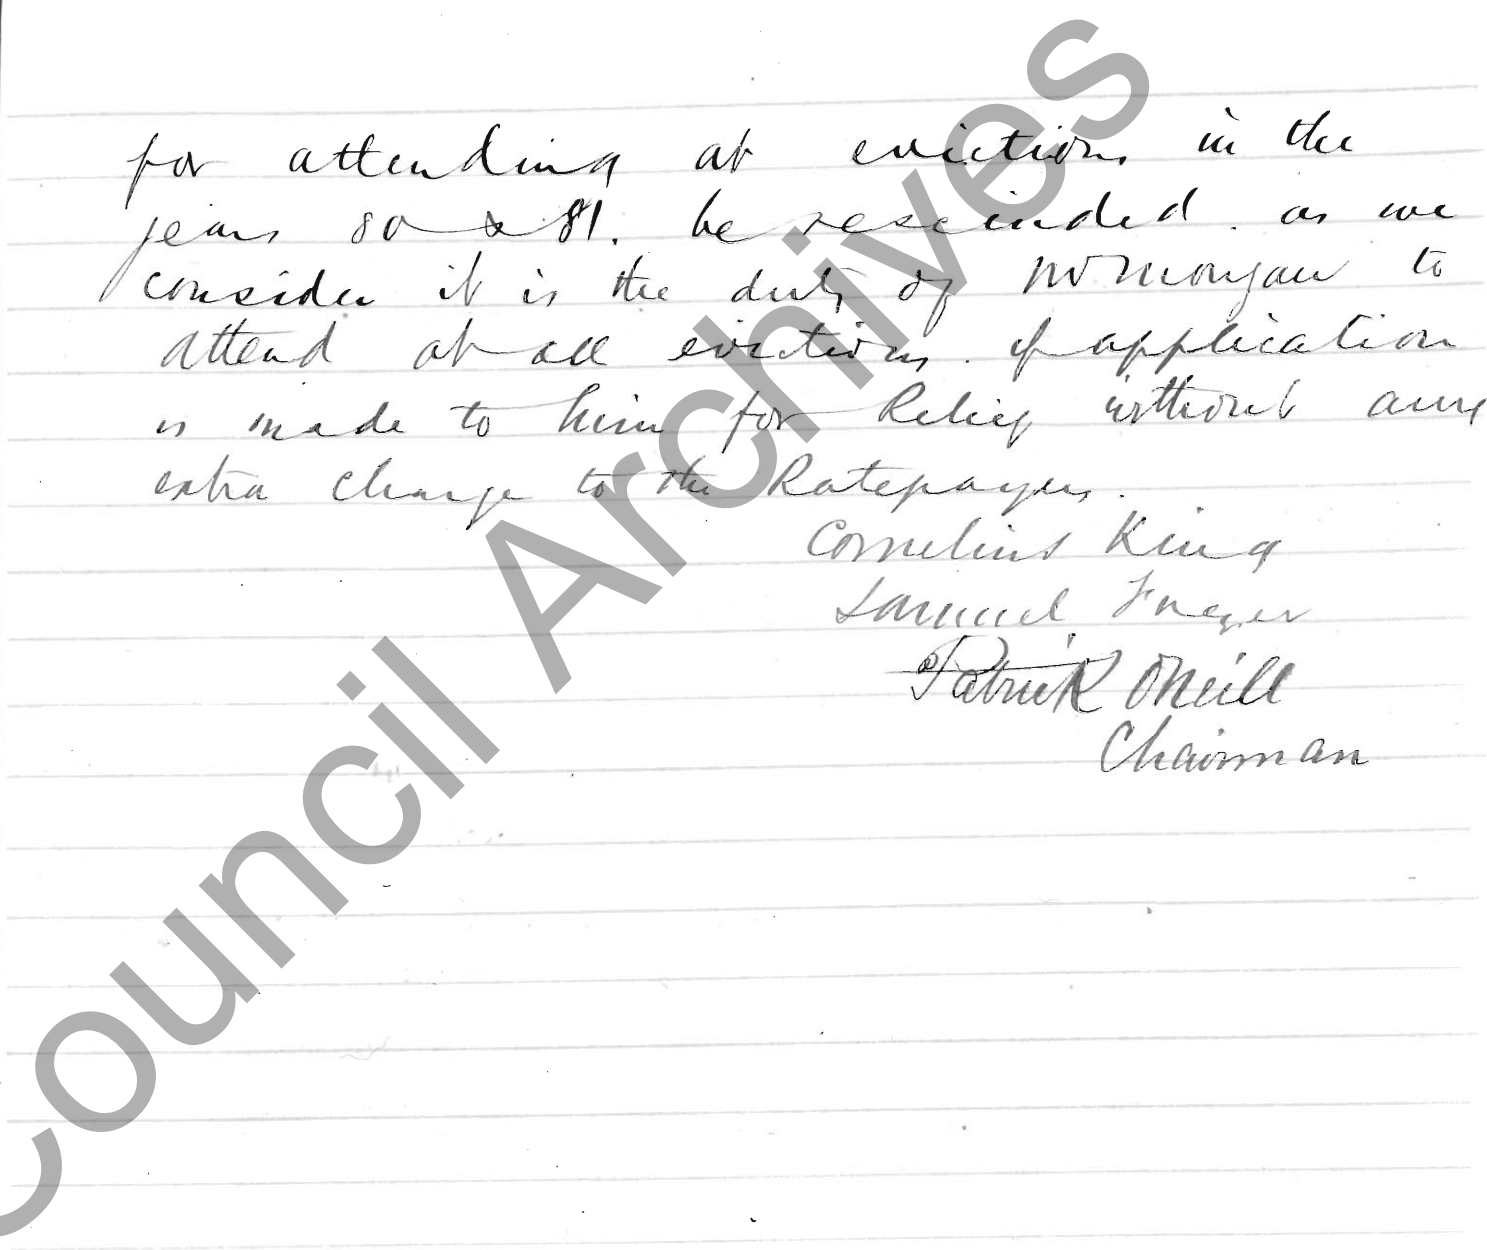 for attending at evictions in the
years 80 & 81. be rescinded. as we
consider it is the duty of Mr Morgan to
attend at all evictions. if application
is made to him for Relief without any
extra charge to the Ratepayers.
Cornelius King
Samuel
Patrick ONeill
Chairman
Council Archives